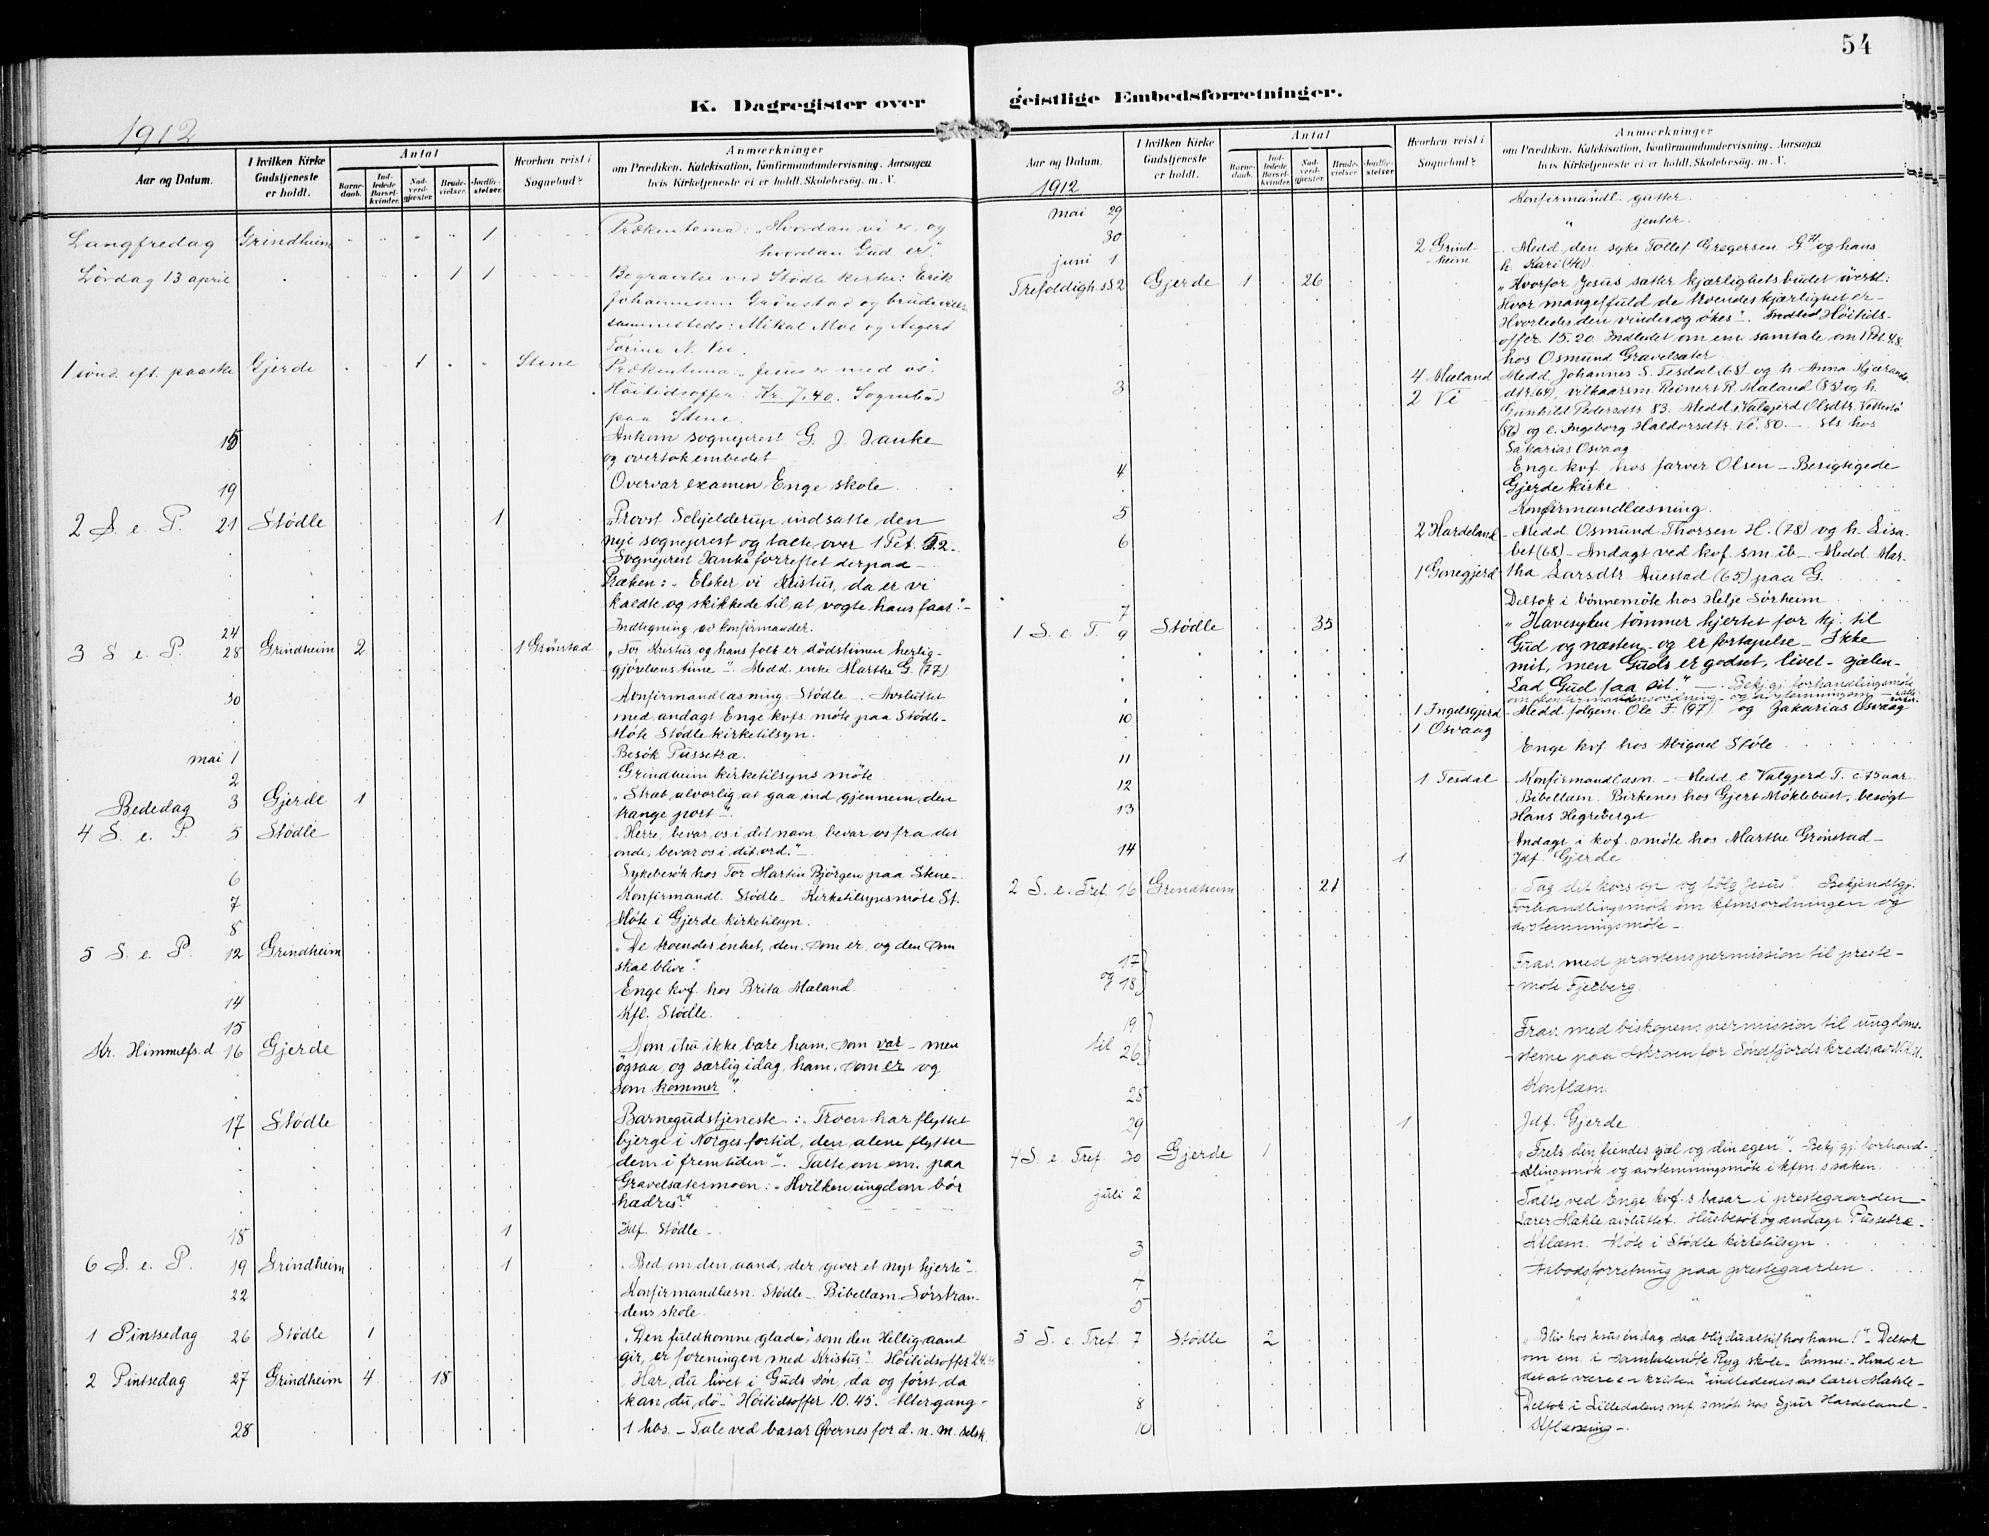 54
K. Dagregister over
geistlige Embedsforretninger.
1912
Aar og Datum.
I hvilken Kirke Gudstjeneste er holdt.
Antal
Barnedaab.
Indledede Barselkvinder.
Nadverdgjæster.
Brudevielser.
Jordfæstelser.
Hvorhen reist i Sognebud?
Anmærkninger
om Prædiken, Katekisation, Konfirmandundervisning. Aarsagen
hvis Kirketjeneste ei er holdt. Skolebesøg. m. V.
Langfredag Grindheim 1 Prækentema: "Hvordan vi er, og
hvordan Gud er".
Lördag 13 april 1 1 Begravelse ved Stödle kirke: Erik
Johannessen Grönstad og brudevielse
sammesteds: Mikal Moe og
Torine N. Vee.
1 sönd. eft. paaske Gjerde 1 Stene Prækentema: "Jesus er med os".
Höitidsoffer: Kr. 7.40. Sognebud
paa Stene.
15 Ankom sogneprest G. J. Janke
og overtok embedet
19 Overvar examen Enge skole
2 S. e. P. 21 Stödle 1 Provst Schjelderup indsatte den
nye sogneprest og talte over 1 Pet. 5.2.
Sogneprest Janke forrettet derpaa
Præken: "Elsker vi Kristus, da er vi
kaldte og skikkede til at vogte hans faar".
24 Indtegning av konfirmander.
3 S. e. P. 28 Grindheim 2 1 Grønstad "For Kristus og hans folk er dödstimen herlig-
gjörelsens time". Medd. enke Marthe G. (77)
30 Konfirmandlæsning Stödle. Avsluttet
med andagt Enge kvfs. möte paa Stödle.
Möte Stödle kirketilsyn.
mai 1 Besök Pussetræ.
2 Grindheim kirketilsyns möte
Bededag 3 Gjerde 1 "Stræb alvorlig at gaa ind gjennem den
trange port".
4 S. e. P. 5 Stödle "Herre, bevar os i dit navn, bevar os fra det
onde, bevar os i dit ord."
6 Sykebesök hos Tor Martin Björgen paa Stene.
7 Konfirmandl. Stödle. Kirketilsynsmöte St.
8 Möte i Gjerde kirketilsyn.
5 S. e. P. 12 Grindheim "De troendes enhet, den, som er, og den som
skal blive".
14 Enge kvf. hos Brita Mæland.
15 Kfl. Stödle.
Kr. Himmelfs.d 16 Gjerde "Kom ihu ikke bare ham, som var - men
ögsaa, og særlig idag, ham, som er og
som kommer".
17 Stödle Barnegudstjeneste: "Troen har flyttet
bjerge i Norges fortid, den alene flytter
dem i fremtiden". Talte om em. paa
Gravelsætermoen: "Hvilken ungdom bör
hædres?"
18 1 Jdf. Stödle
6 S. e. P. 19 Grindheim 1 "Bed om den aand, der giver et nyt hjerte".
22 Konfirmandlæsn. Stödle. Bibellæsn. Sörstran-
dens skole.
1 Pintsedag 26 Stödle 1 "Den fuldkomne glæde, som den Hellig-aand
gir, er foreningen med Kristus". Höitidsoffer 24.
2 Pintsedag 27 Grindheim 4 18 "Har du livet i Guds sön, da og först da
kan du dö". Höitidsoffer 10.45. Altergang
28 1 hbs. - Tale ved basar Övernes for d. n. m. selsk.
Aar og Datum.
1912
I hvilken Kirke Gudstjeneste er holdt.
Antal
Barnedaab.
Indledede Barselkvinder.
Nadverdgjæster.
Brudevielser.
Jordfæstelser.
Hvorhen reist i Sognebud?
Anmærkninger
om Prædiken, Katekisation, Konfirmandundervisning. Aarsagen
hvis Kirketjeneste ei er holdt. Skolebesøg. m. V.
mai 29 Konfirmandl. gutter.
30 " jenter.
juni 1 2 Grindheim Medd. den syke Tollef Gregersen G. 71 og hans
h. Kari (40).
Trefoldigh. s 2 Gjerde 1 26 "Hvorfor Jesus sætter kjærlighetsbudet överst:
Hvor mangelfuld de troendes kjærlighet er -
Hvorledes den vindes og økes". Höitids-
offer 15.20. Indledet om em. samtale om 1 Pet. 4.8.
hos Osmund Gravelsæter
3 4 Mæland Medd. Johannes S. Tesdal (68) og h. Anna Kjærands-
dtr. (64), vilkaarsm. Reinert R. Mæland (85) og h.
2 Vé Gunhild Pedersdtr 83. Medd. Valgjerd Olsdtr. Vettestö
(86) og e. Ingeborg Haldorsdtr. Vé. 80. - Sts hos
Sakarias Osvaag
4 Enge kvf. hos farver Olsen - Besigtigede
Gjerde kirke
5 Konfirmandlæsning.
6 2 Hardeland Medd. Osmund Thorsen H. (78) og h. Lisa-
bet (68) - Andagt ved kvf. sm. ib - Medd. Mar-
1 Gonegjerd tha Larsdtr. Auestad (65) paa G.
7 Deltok i bönnemöte hos Helje Sörheim
1 S. e. T. 9 Stödle 35 "Havesyken tömmer hjertet for kj. til
Gud og næsten - og er fortapelse - Ikke
mit, men Guds er godset, livet - sjælen -
Lad Gud faa sit." - Bekj. gj. forhandlingsmöte
om konfirmandensordning og avstemningsm.
10 1 Ingelsgjerd Medd. folgem. Ole F. (97) og Zakarias Osvaag
1 Osvaag
11 Enge kvf. hos Abigael Stöle
12 1 Tesdal Konfirmandlæsn. - Medd. e. Valgjerd T. c 75 aar
13 Bibellæsn. Birkenes hos Gjert Möklebust, besögt
Hans Hegreberget
14 Andagt i kvf.s möte hos Marthe Grönstad -
1 Jdf. Gjerde
2 S. e. Tref. 16 Grindheim 21 "Tag dit kors op og fölg Jesus". Bekjendtgj.
Forhandlingsmöte om kfmsordningen og
avstemningsmöte -
17 og 18 Frav. med provstens permission til preste-
möte Fjelberg.
19 til 26 Frav. med biskopens permission til ungdoms-
stevne paa Askroen for Söndfjords kreds av N.K.U.
28 Konflæsn
29 1 Jdf. Gjerde
4 S. e. Tref. 30 Gjerde 1 "Frels din fiendes sjæl og din egen". Bekj. gj. forhand-
lingsmöte og avstemningsmöte i kfm.s saken.
juli 2 Talte ved Enge kvf.s basar i prestegaarden
Lærer Mæhle avsluttet. Husbesök og andagt Pussetræ.
3 Kflæsn. Möte i Stödle kirketilsyn
4 Aabodsforretning paa prestegaarden.
5 " "
5 S. e. Tref. 7 Stödle 2 "Bliv hos Jesus en dag, saa blir du altid hos ham!" - Deltok
om em. i samtalemöte Ryg skole. Emne: "Hvad er
det at være en kristen" indlededes av lærer Mæhle.
8 Deltok i Lilledalens mf.s möte hos Sjur Hardeland
10 Kflæsning -.